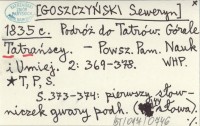 [GOSZCZYŃSKI Seweryn]
1835 c. Podróż do Tatrów. Górale
Tatrzańscy. – Powsz. Pam. Nauk
i Umiej. 2: 369-378. WHP.
★ T, P, S.
S. 373-374: pierwszy słow-
niczek gwary podh. ( słowa).
BT/014/0746